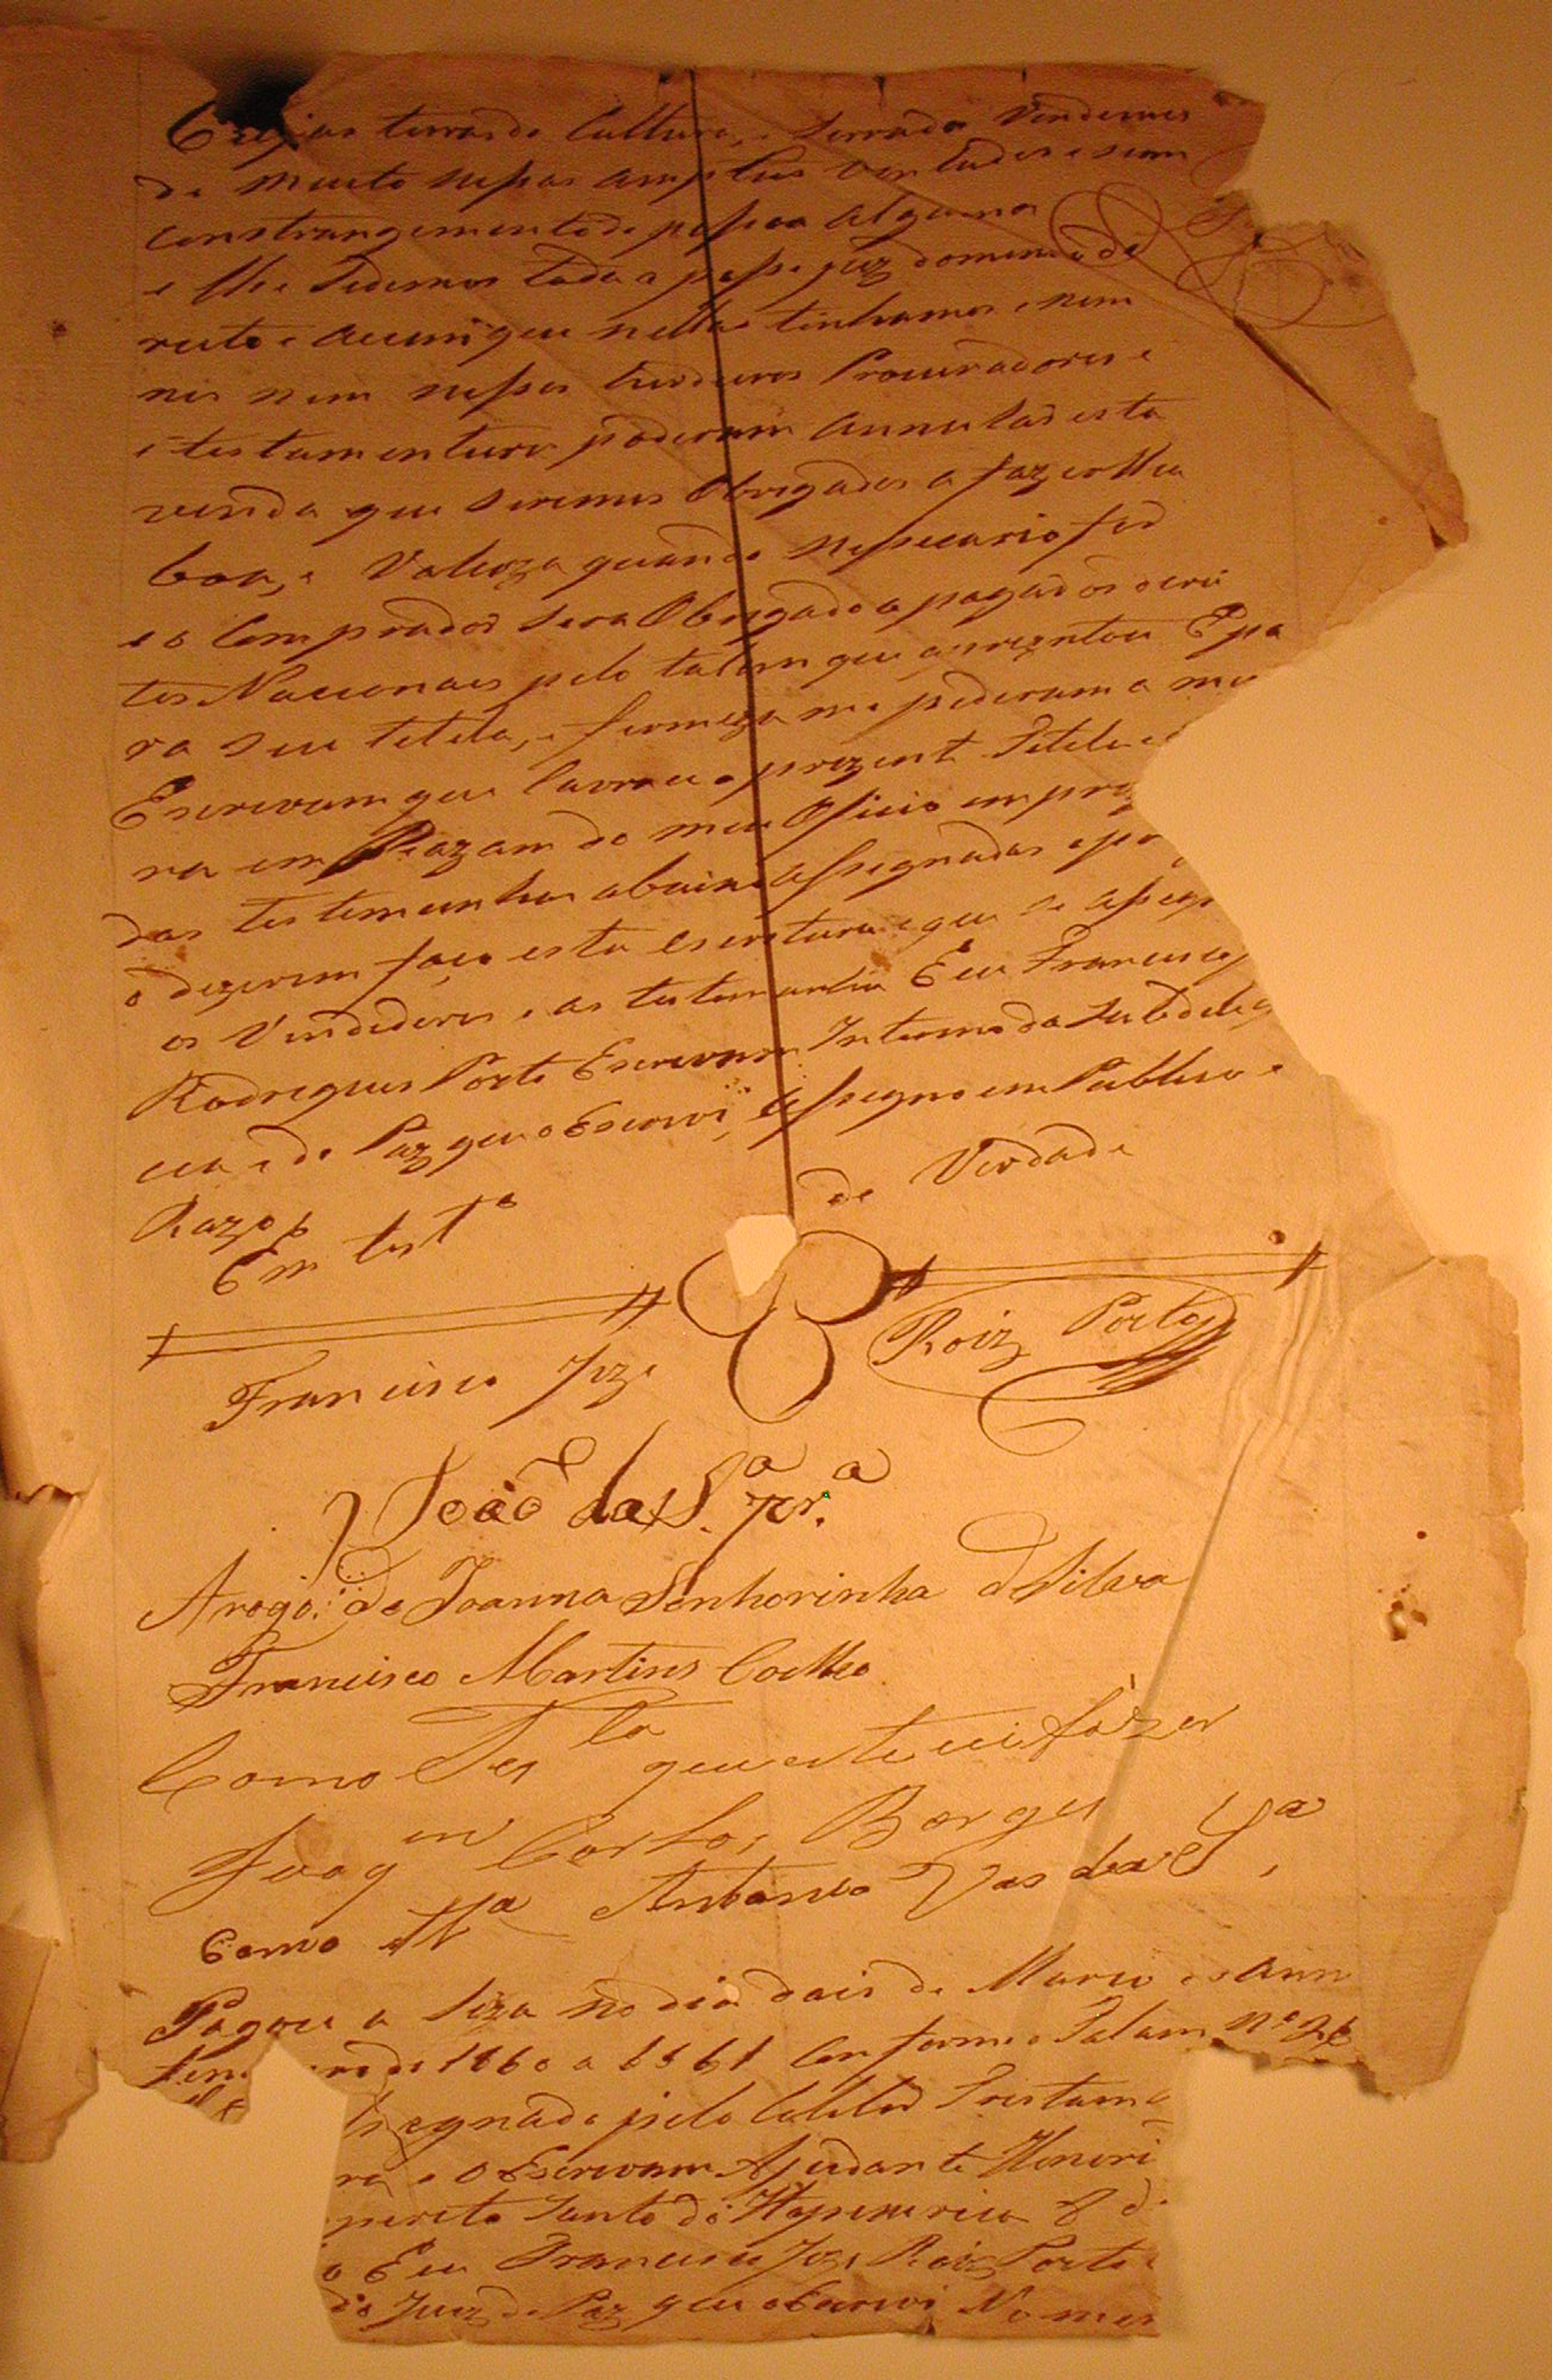 terras de Cultura, e Serrado Vendemos
de muito nossas amplas Vontades e sem
constrangemento de pessoa alguma
e lhe Sedemos toda a posse juz domenio de
reito e acam que nellas tinhamos e nem
nos nem nossos Erdeiros Procuradores e
e testamenteiro poderam annular esta
venda que seremos Obrigados a fazer lhea
boa, e Valioza quando nessecario for
e o Comprador sera Obrigado a pagar os deri
tos Nacionaes pelo talam que aprezentou E pa
ra seu titulo, e firmeza me pederam a mi
Escrevam que lavrace o prezent Titulo
ra em Razam do meu Oficio em pre
das testemunhas abaixo assegnadas e por
o dizerem faço esta escretura e que se asseg
os Vendedores e as testemunhas Eu Francisco
Rodregues Porto Escrevam Interno da Subdeleg
cia e de Paz que o Escrevi, Assegno em Publico e
Razo
Em testº de Verdade
Francisco Joze Roiz Porto
João da S.ª Pr.ª
Arogo de Joanna Senhorinha da Silva
Francisco Martins Coelho
Como Tes ta que este vi fazer
Joaq m Carlos Borges
Como Tª Antonio Vas da Sª
Pagou a Siza no dia dois de Março do Ann
ro de 1860 a 1861 Conforme o Talam nº
segnado pelo Colletor
ra e o Escrevam Ajudante Honori
perito Santo do Itapecerica
o Eu Francisco Joze Roiz Porto
do Juiz de Paz que o Escrevi